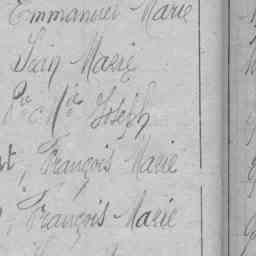 Emmanuel Marie
Jean Marie
Joseph
François Marie
François Marie